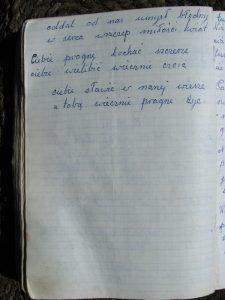 oddal od nas umysł błędny
w serca wszczep miłości kwiat
Ciebie pragnę kochać szczerze
ciebie wielbić wiecznie czcić
ciebie sławić w naszej wierze
z tobą wiecznie pragnę żyć